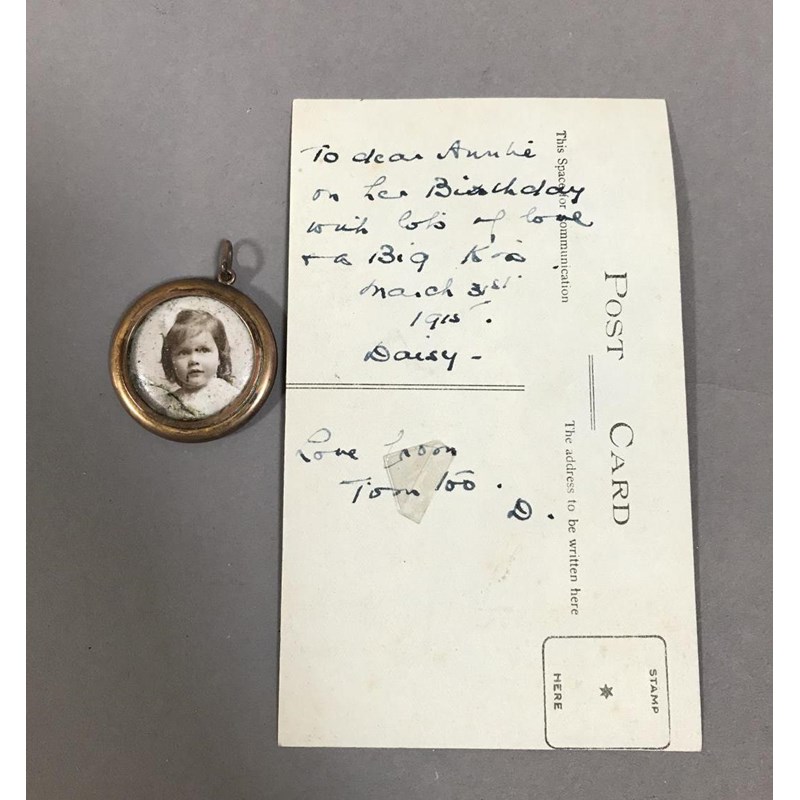 To dear Auntie
on her Birthday
with lots of love
+ a Big Kiss
March 31st
1915.
Daisy -
Love from
Tom too.
D.
POST CARD
This Space for Communication
The address to be written here
STAMP
HERE